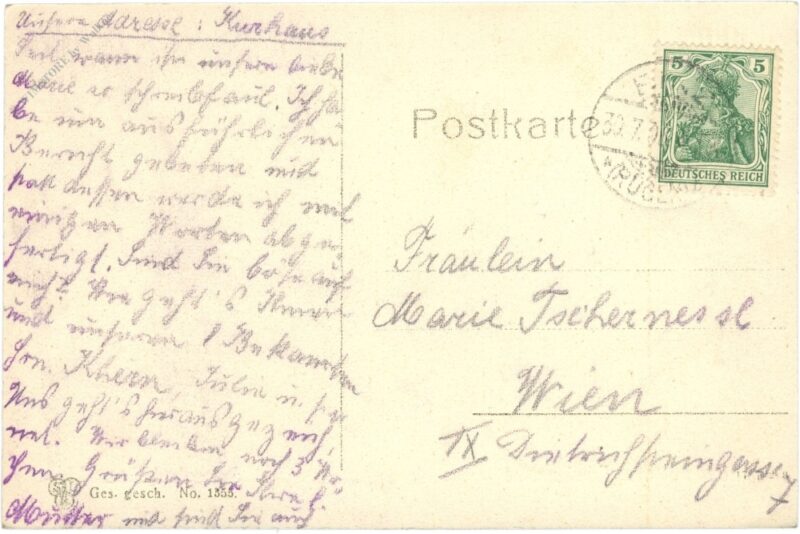 Unsere Adresse: Kurhaus
Seit wann ist unsere liebe
Marie so schreibfaul. Ich ha
be um ausführlichen
Bericht gebeten und
statt dessen werde ich mit
einigen Worten abge
fertigt. Sind Sie böse auf
mich? Wie geht's Ihnen
und unseren Bekannten
Hrn. Khern, Julie u.
Uns geht's herausgezeich
net. Wir bleiben noch 3 Wo
chen. Grüßen Sie Ihre
Mutter und sind Sie auch
Ges. gesch. No. 1355.
Postkarte
5 5
DEUTSCHES REICH
30.7.
(RÜGEN)
Fräulein
Marie Tschernessl
Wien
IX Dietrichsteingasse
7